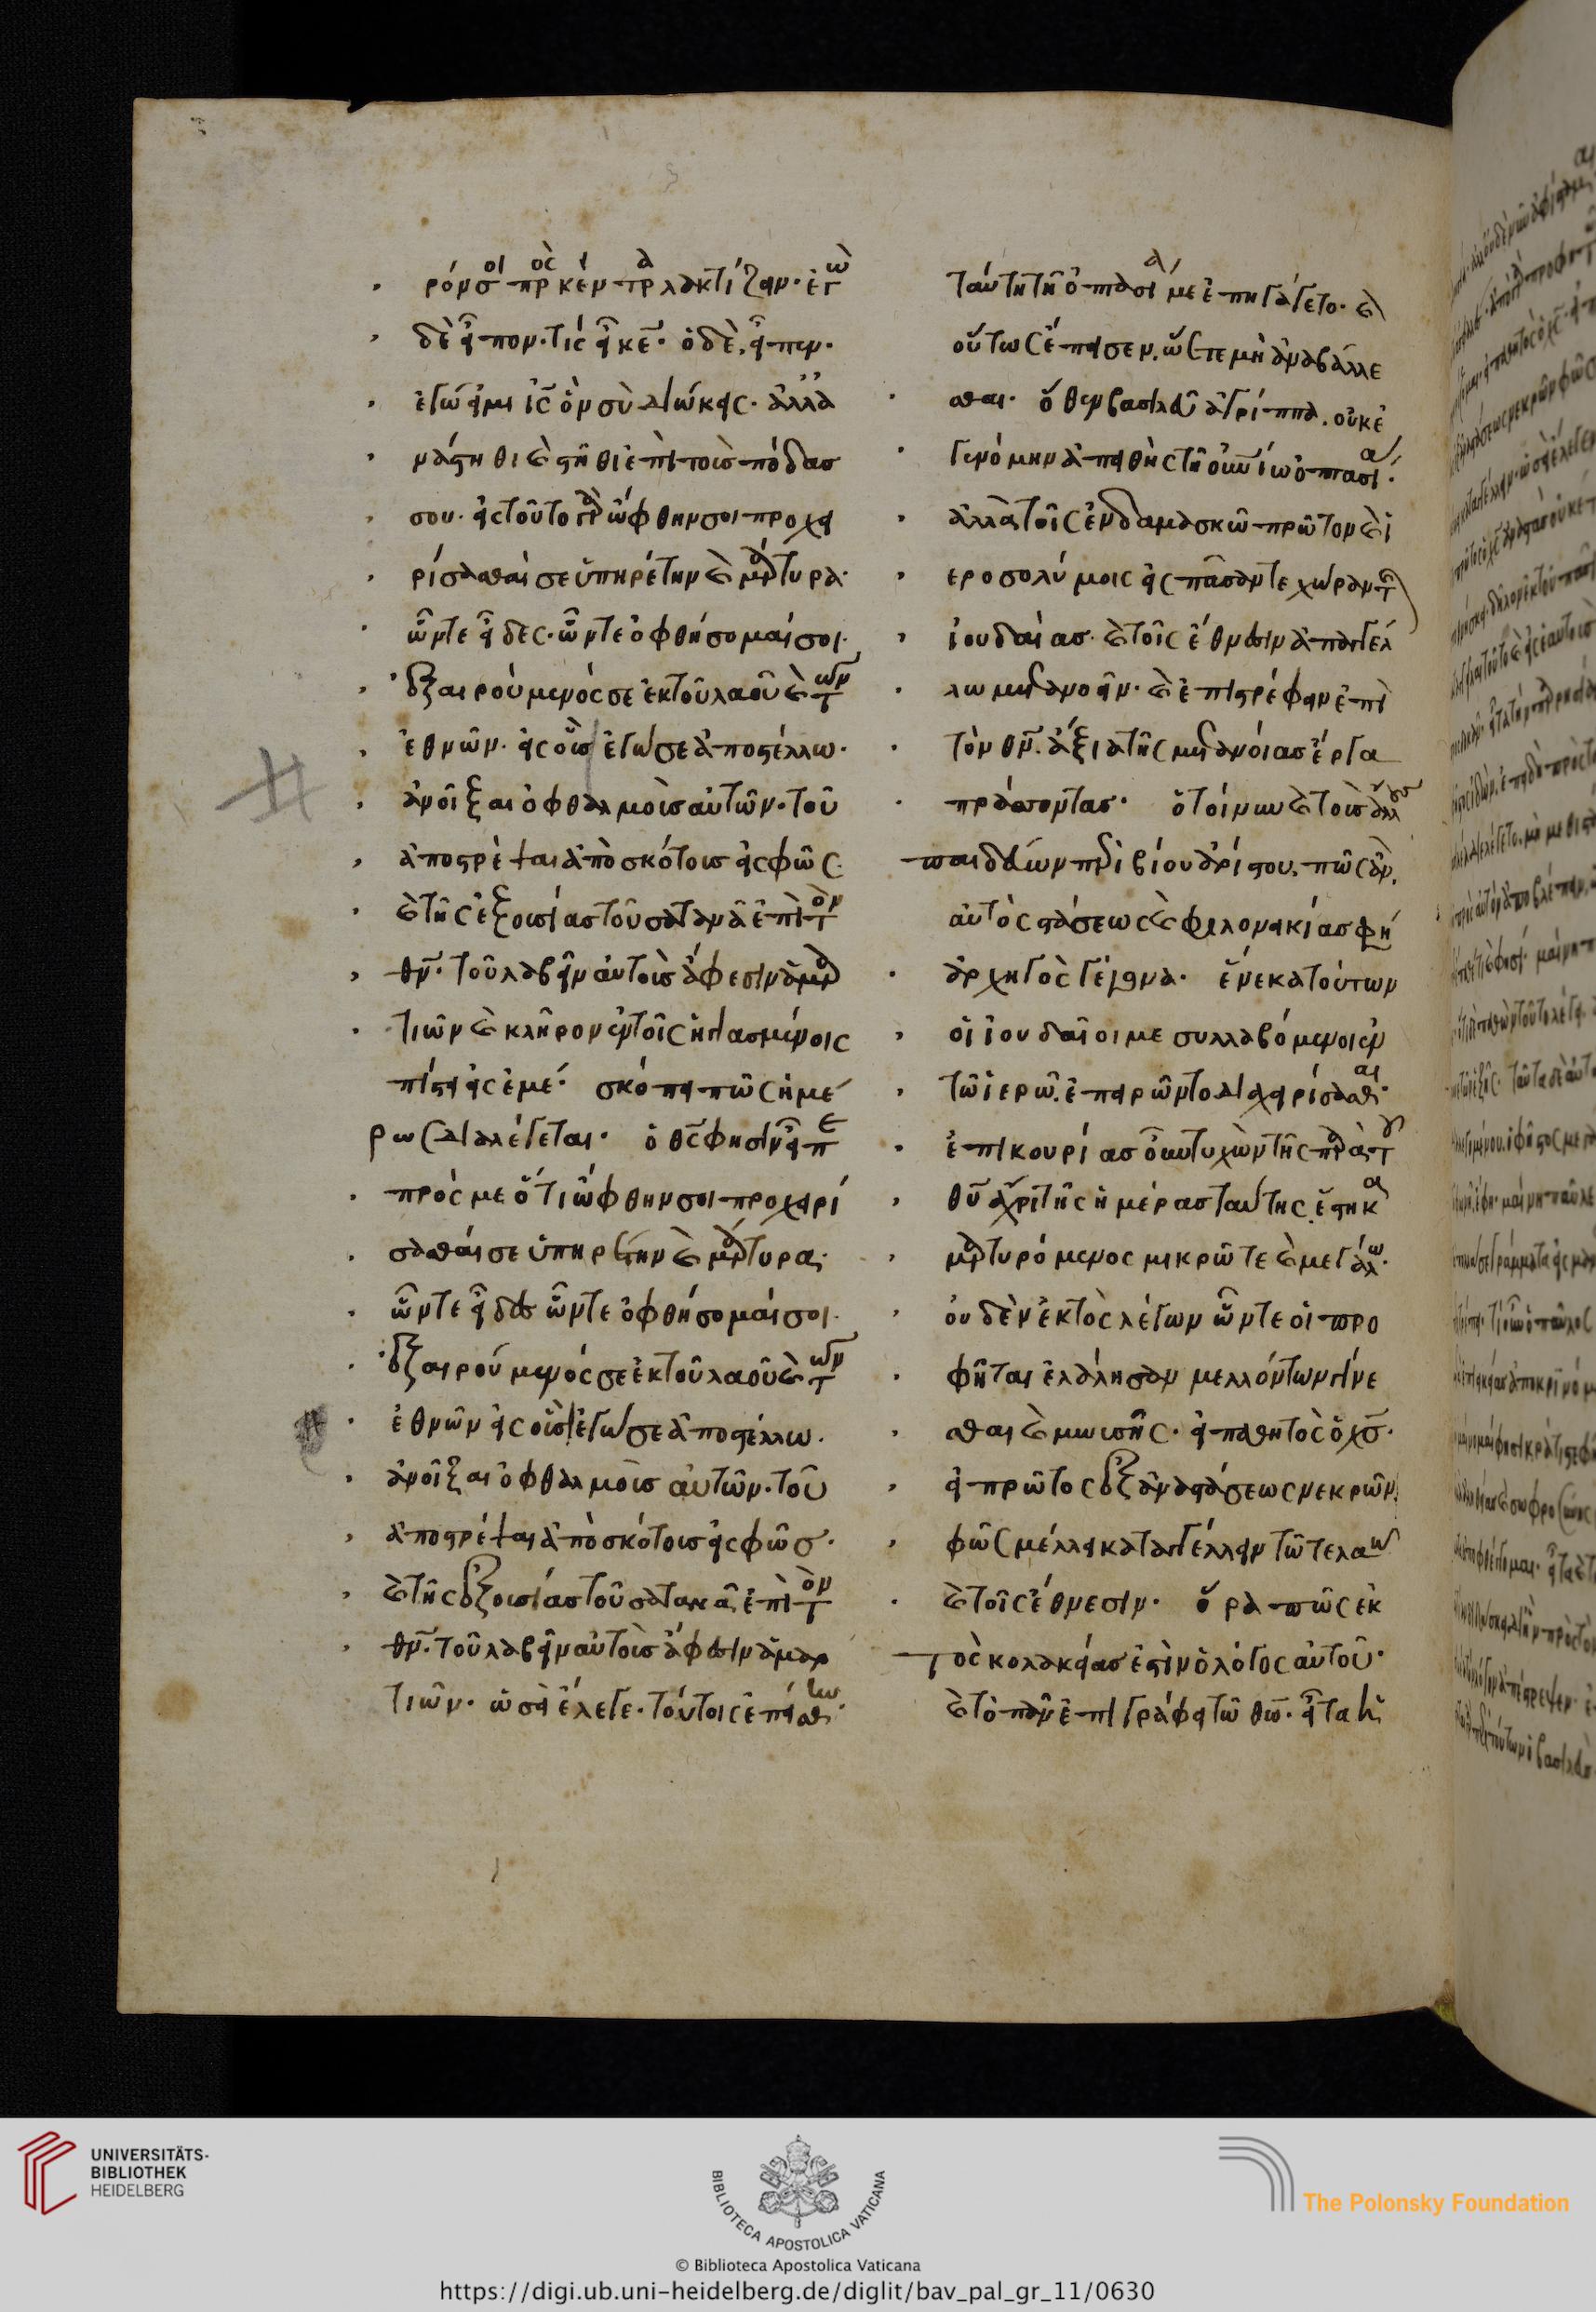 ρόν σοι πρὸς κέντρα λακτίζειν. ἐγὼ
δὲ εἶπον. τίς εἶ κε̅. ὁ δὲ, εἶπεν.
ἐγώ εἰμι ις̅ ὃν σὺ διώκεις. ἀλλὰ
ἀνάστηθι καὶ στῆθι ἐπὶ τοὺς πόδας
σου. εἰς τοῦτο γὰρ ὤφθην σοι προχει
ρίσασθαί σε ὑπηρέτην καὶ μάρτυρα.
ὧν τε εἶδες. ὧν τε ὀφθήσομαί σοι.
ἐξαιρούμενός σε ἐκ τοῦ λαοῦ καὶ τῶν
ἐθνῶν. εἰς οὓς ἐγώ σε ἀποστέλλω.
ἀνοῖξαι ὀφθαλμοὺς αὐτῶν. τοῦ
ἀποστρέψαι ἀπὸ σκότους εἰς φῶς.
καὶ τῆς ἐξουσίας τοῦ σατανᾶ ἐπὶ τὸν
θν̅. τοῦ λαβεῖν αὐτοὺς ἄφεσιν ἁμαρ
τιῶν καὶ κλῆρον ἐν τοῖς ἡγιασμένοις
πίστει εἰς ἐμέ. σκόπει πῶς ἡμέ
ρως διαλέγεται. ὁ θς̅ φησὶν εἶπε
πρός με ὅτι ὤφθην σοι προχειρί
σασθαί σε ὑπηρέτην καὶ μάρτυρα.
ὧν τε εἶδες ὧν τε ὀφθήσομαί σοι.
ἐξαιρούμενός σε ἐκ τοῦ λαοῦ καὶ τῶν
ἐθνῶν εἰς οὓς ἐγώ σε ἀποστέλλω.
ἀνοῖξαι ὀφθαλμοὺς αὐτῶν. τοῦ
ἀποστρέψαι ἀπὸ σκότους εἰς φῶς.
καὶ τῆς ἐξουσίας τοῦ σατανᾶ ἐπὶ τὸν
θν̅. τοῦ λαβεῖν αὐτοὺς ἄφεσιν ἁμαρ
τιῶν. ὡσεὶ ἔλεγε. τούτοις ἐπείσθην.
ταύτῃ τῇ ὀπτασίᾳ με ἐπηγάγετο. καὶ
οὕτως ἔπεισεν. ὥστε μὴ ἀναβάλλε
σθαι. ὅθεν βασιλεῦ ἀγρίππα. οὐκ ἐ
γενόμην ἀπειθὴς τῇ οὐνίω ὀπτασίᾳ.
ἀλλὰ τοῖς ἐν δαμασκῷ πρῶτον καὶ ἱ
εροσολύμοις εἰς πᾶσάν τε χώραν τῆς
ἰουδαίας. καὶ τοῖς ἔθνεσιν ἀπαγγέλ
λω μετανοεῖν. καὶ ἐπιστρέφειν ἐπὶ
τὸν θν̅. ἄξια τῆς μετανοίας ἔργα
πράσσοντας. ὁ τοίνυν καὶ τοὺς ἄλλους
παιδεύων περὶ βίου ἀρίστου. πῶς ἂν
αὐτὸς στάσεως καὶ φιλονεικίας φη
ἀρχηγὸς γέγονα. ἕνεκα τούτων
οἱ ἰουδαῖοι με συλλαβόμενοι ἐν
τῷ ἱερῷ. ἐπειρῶντο διαχειρίσασθαι.
ἐπικουρίας οὖν τυχὼν τῆς παρὰ τοῦ
θυ̅ ἄχρι τῆς ἡμέρας ταύτης. ἕστηκα
μαρτυρόμενος μικρῷ τε καὶ μεγάλῳ.
οὐδὲν ἐκτὸς λέγων ὧν τε οἱ προ
φῆται ἐλάλησαν μελλόντων γίνε
σθαι καὶ μωυσῆς. εἰ παθητὸς ὁ χς̅.
εἰ πρῶτος ἐξ ἀναστάσεως νεκρῶν
φῶς μέλλει καταγγέλλειν τῷ τε λαῷ
καὶ τοῖς ἔθνεσιν. ὅρα πῶς ἐκ
τὸς κολακείας ἐστὶν ὁ λόγος αὐτοῦ.
καὶ τὸ πᾶν ἐπιγράφει τῷ θω̅. εἶτα καὶ
UNIVERSITÄTS-
BIBLIOTHEK
HEIDELBERG
BIBLIOTECA APOSTOLICA VATICANA
© Biblioteca Apostolica Vaticana
The Polonsky Foundation
https://digi.ub.uni-heidelberg.de/diglit/bav_pal_gr_11/0630